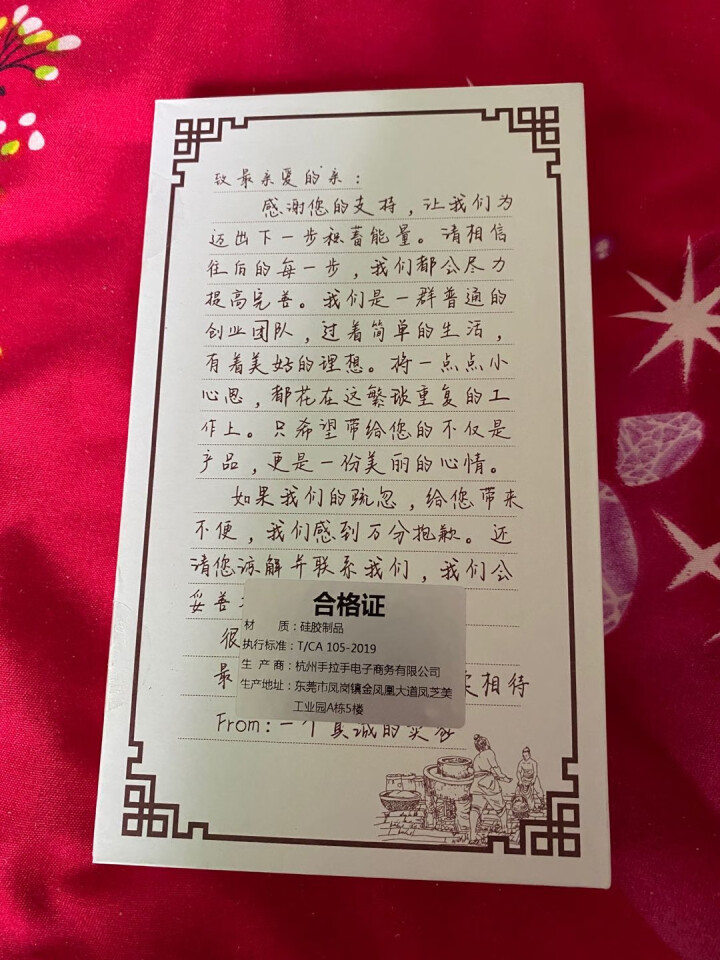 致最亲爱的亲：
感谢您的支持，让我们为
迈出下一步积蓄能量。请相信
往后的每一步，我们都会尽力
提高完善。我们是一群普通的
创业团队，过着简单的生活，
有着美好的理想。将一点点小
心思，都花在这繁琐重复的工
作上。只希望带给您的不仅是
产品，更是一份美丽的心情。
如果我们的疏忽，给您带来
不便，我们感到万分抱歉。还
请您谅解并联系我们，我们会
妥善
合格证
材 质：硅胶制品
执行标准：T/CA 105-2019
生 产 商：杭州手拉手电子商务有限公司
生产地址：东莞市凤岗镇金凤凰大道凤芝美
工业园A栋5楼
很
最 相待
From：一个真诚的卖家